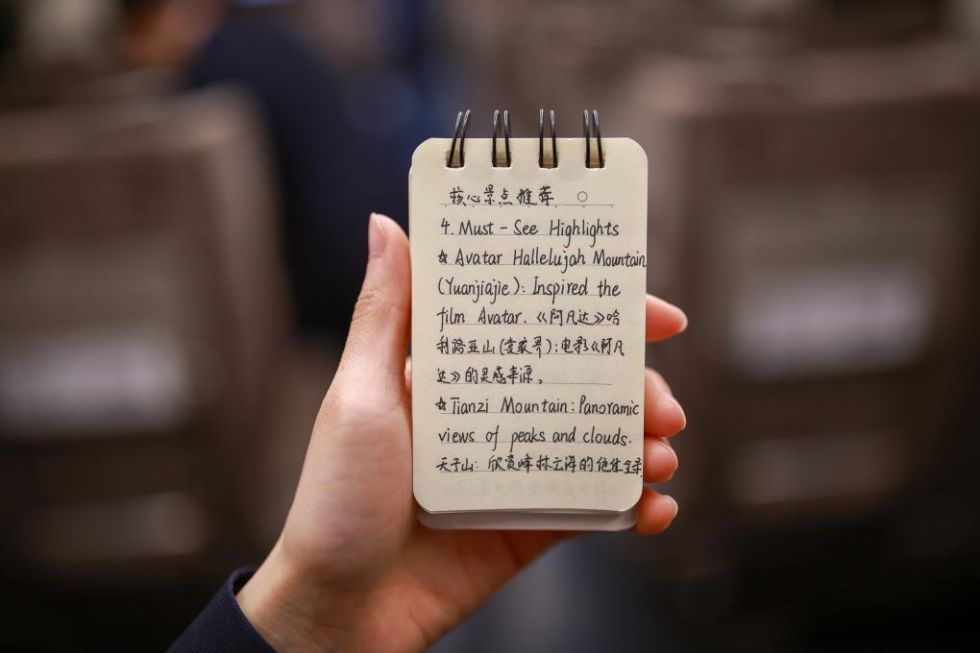 核心景点推荐
4. Must-See Highlights
☆ Avatar Hallelujah Mountain
(Yuanjiajie): Inspired the
film Avatar.《阿凡达》哈
利路亚山(袁家界):电影《阿凡
达》的灵感来源。
☆ Tianzi Mountain: Panoramic
views of peaks and clouds.
天子山: 欣赏峰林云海的绝佳全景